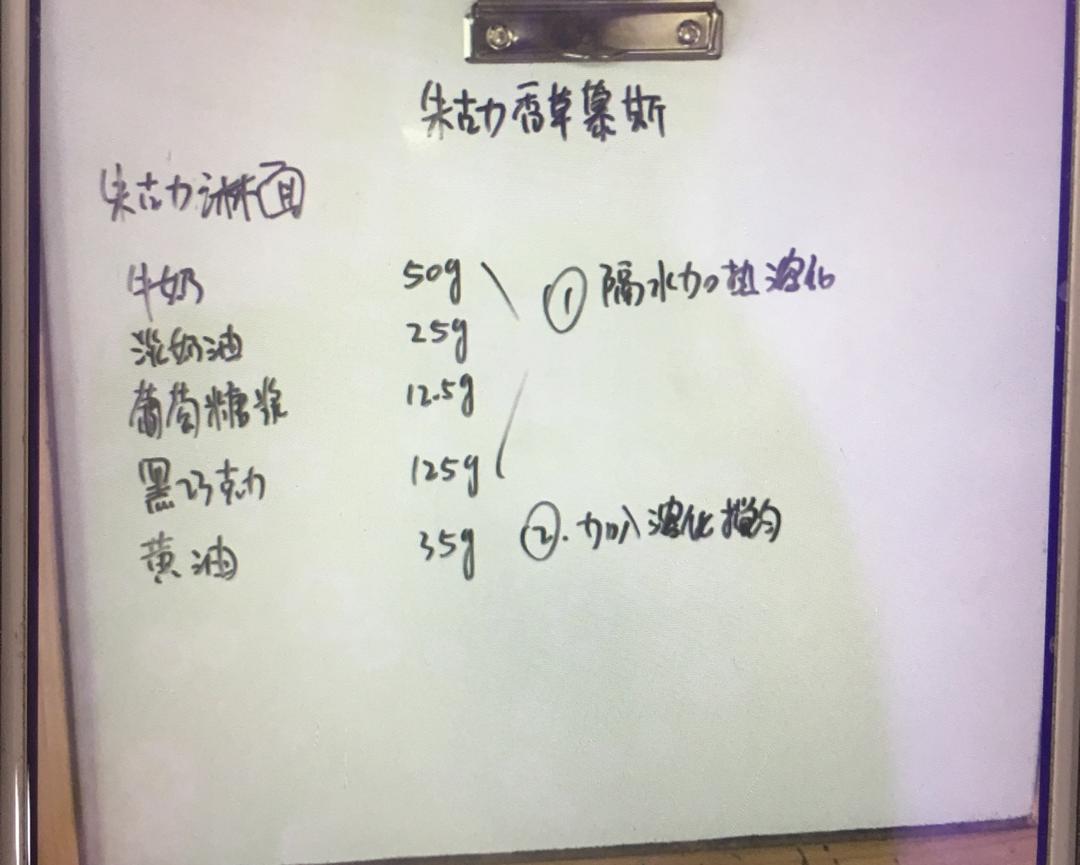 朱古力香草慕斯
朱古力淋面
牛奶 50g ① 隔水加热溶化
淡奶油 25g
葡萄糖浆 12.5g
黑巧克力 125g
黄油 35g ②. 加入溶化搅匀